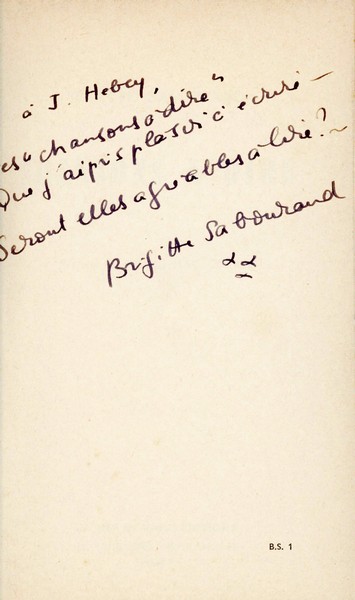 à J. Hebey,
ces "chansons à dire"
Que j'ai pris plaisir à écrire —
Seront elles agréables à lire ? ~
Brigitte Sabouraud
B.S. 1